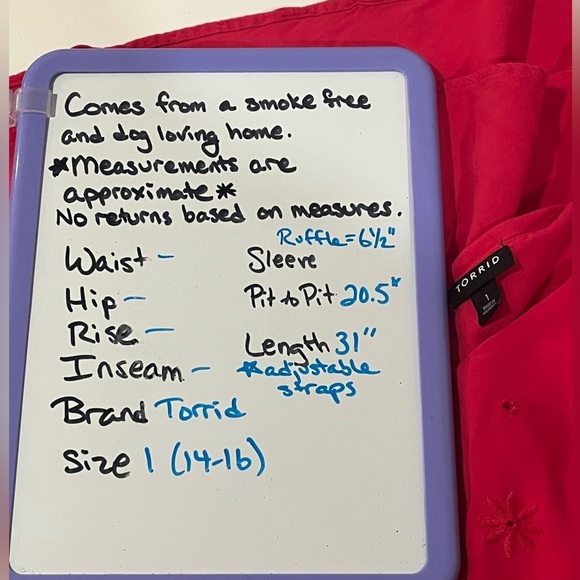 Comes from a smoke free
and dog loving home.
*Measurements are
approximate*
No returns based on measures.
Waist -
Hip -
Rise -
Inseam -
Brand Torrid
Size 1 (14-16)
Ruffle=6½"
Sleeve
Pit to Pit 20.5"
Length 31"
*adjustable
straps
TORRID
1